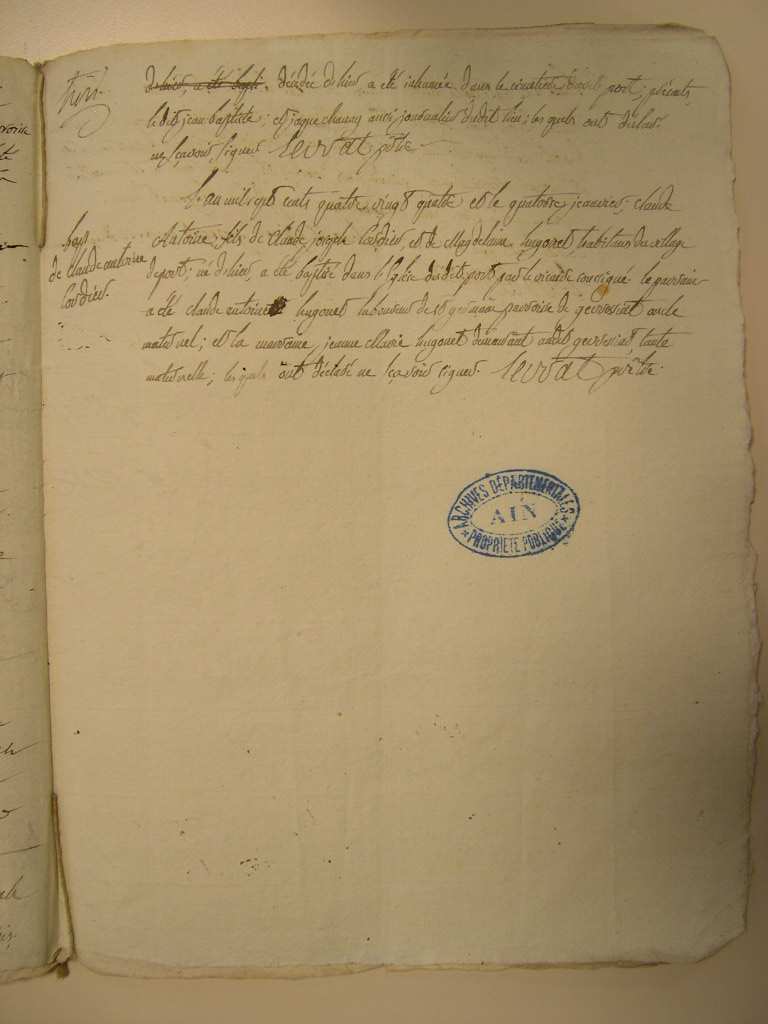 trois.
d'hier, a été bapti. décédée d'hier a été inhumée dans le cimetiere dudit port; présents
ledit jean baptiste; et jaque chanay aussi journalier dudit lieu; les quels ont déclaré
ne sçavoir signer. levrat ptre
L'an mil sept cents quatre vingt quatre et le quatorze janvier; claude
antoine, fils de Claude joseph Cordier, et de Magdelaine hugonet, habitans du village
de port; né d'hier, a été baptisé dans l'église dudit port par le vicaire soussigné le parrain
a été claude antoine hugonet laboureur de st germain parroisse de gevressiat oncle
maternel; et la marraine, jeanne Marie hugonet demeurant audit gevressiat tante
maternelle; les quels ont déclaré ne sçavoir signer. levrat prêtre
bapt
de Claude antoine
Cordier.
ARCHIVES DÉPARTEMENTALES
AIN
PROPRIÉTÉ PUBLIQUE